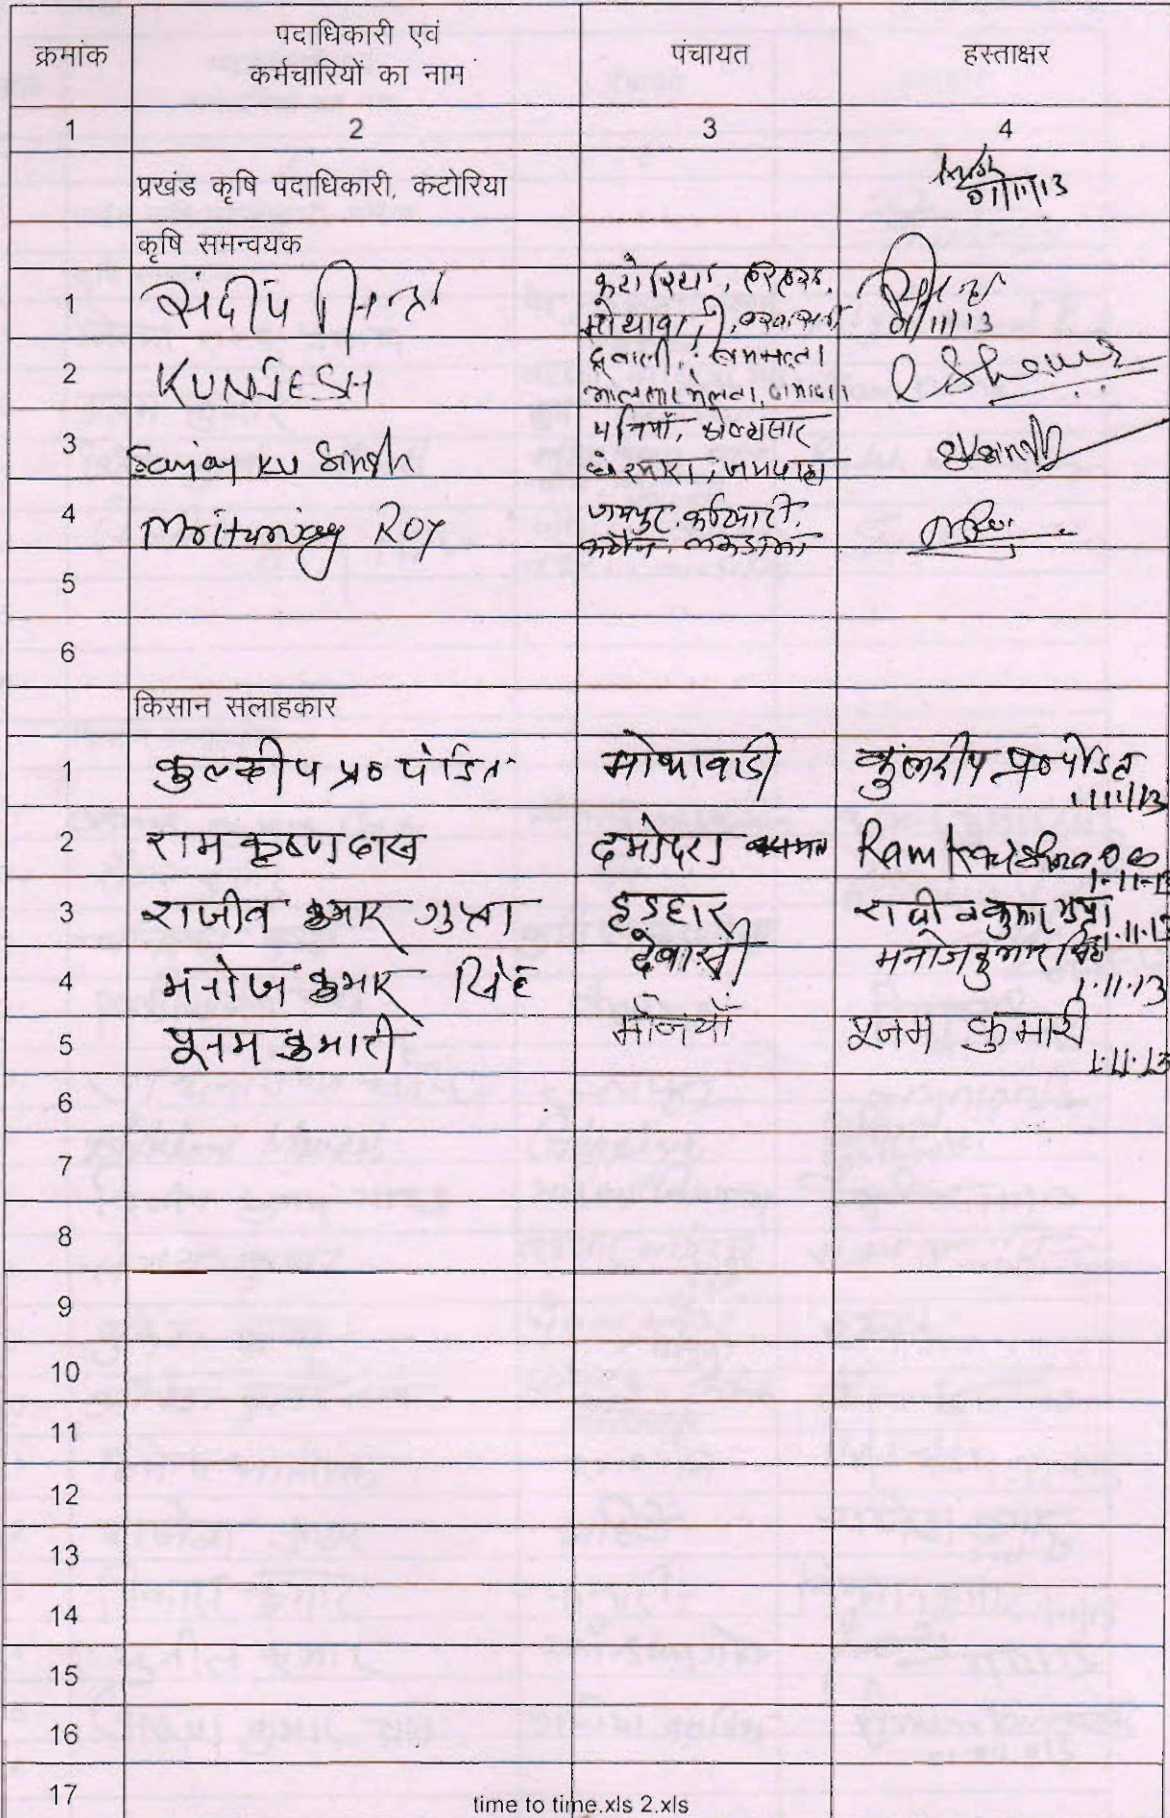 क्रमांक पदाधिकारी एवं कर्मचारियों का नाम पंचायत हस्ताक्षर
1 2 3 4
प्रखंड कृषि पदाधिकारी, कटोरिया 01/11/13
कृषि समन्वयक
1 संदीप सिन्हा कटोरिया, मोथावाड़ी, 01/11/13
2 KUNJESH
3 Sanjay KU Singh
4 Mritunjay ROY जयपुर,
5
6
किसान सलाहकार
1 कुलदीप प्र० पंडित मोथावाडी कुलदीप प्र० पंडित 1/11/13
2 राम कृष्ण दास दमोदरा 1-11-13
3 राजीव कुमार गुप्ता हडहार राजीव कुमार गुप्ता 1.11.13
4 मनोज कुमार सिंह देवासी मनोज कुमार सिंह 1.11.13
5 पूनम कुमारी पूनम कुमारी 1.11.13
6
7
8
9
10
11
12
13
14
15
16
17
time to time.xls 2.xls